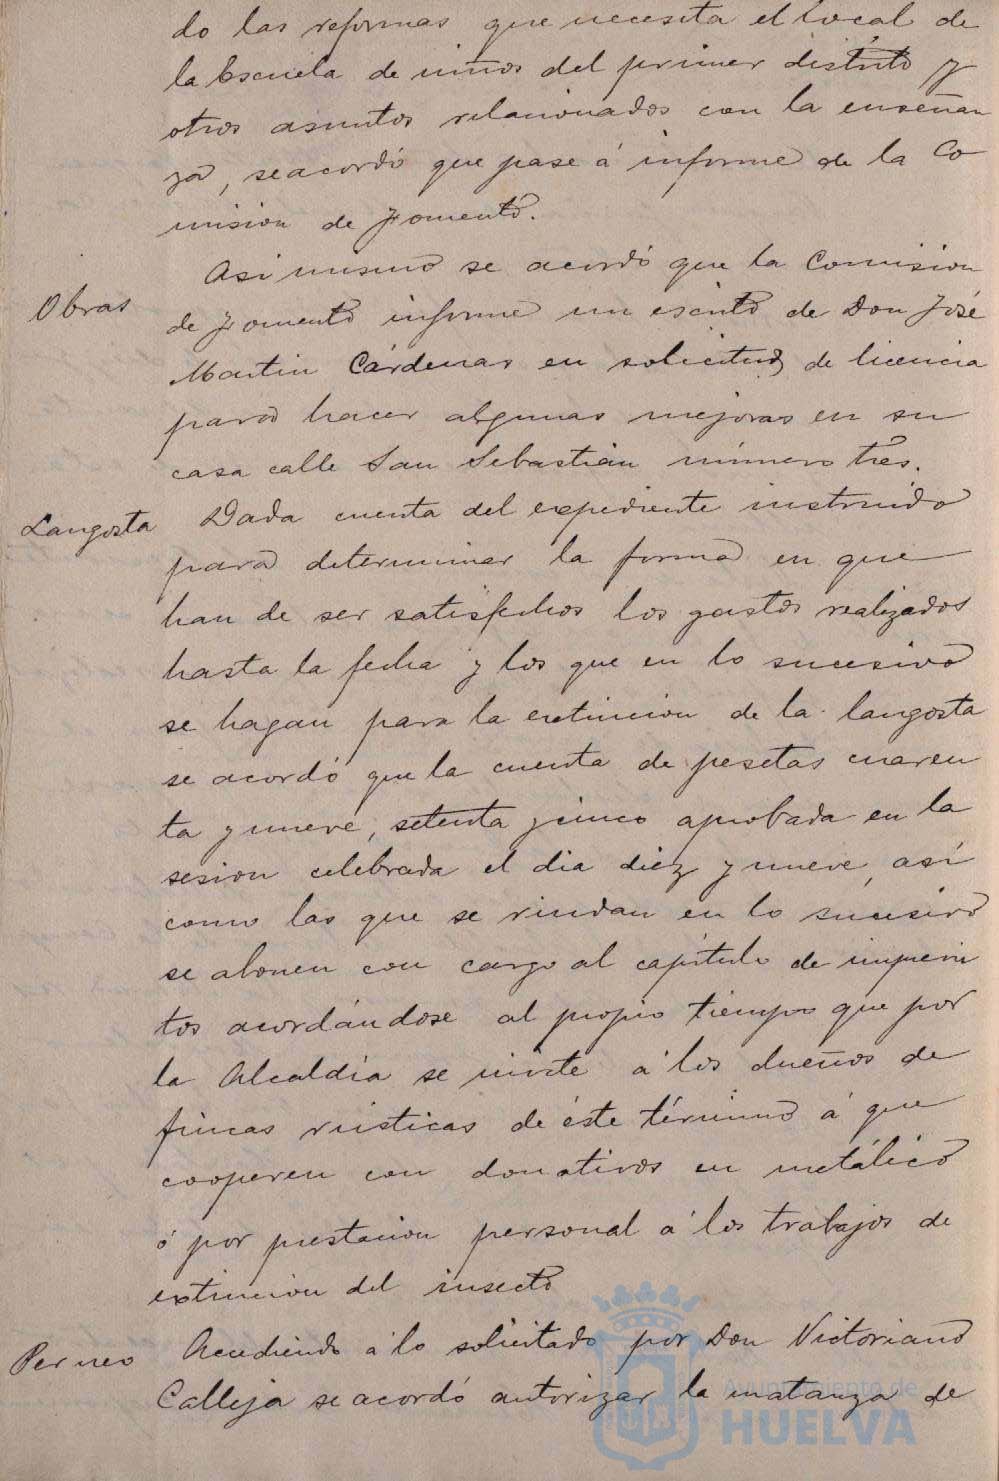 do las reformas que necesita el local de
la Escuela de niños del primer distrito y
otros asuntos relacionados con la enseñan
za, se acordó que pase á informe de la Co
mision de Fomento.
Obras
Asi mismo se acordó que la Comision
de Fomento informe un escrito de Don José
Martin Cárdenas en solicitud de licencia
para hacer algunas mejoras en su
casa calle San Sebastián número tres.
Langosta
Dada cuenta del expediente instruido
para determinar la forma en que
han de ser satisfechos los gastos realizados
hasta la fecha y los que en lo sucesivo
se hagan para la extincion de la langosta
se acordó que la cuenta de pesetas cuaren
ta y nueve, setenta y cinco aprobada en la
sesion celebrada el dia diez y nueve, así
como las que se rindan en lo sucesivo
se abonen con cargo al capítulo de imprevis
tos acordándose al propio tiempo que por
la Alcaldía se invite á los dueños de
fincas rústicas de éste término á que
cooperen con donativos en metálico
ó por prestacion personal á los trabajos de
extincion del insecto
Perneo
Accediendo á lo solicitado por Don Victoriano
Calleja se acordó autorizar la matanza de
Ayuntamiento de
HUELVA